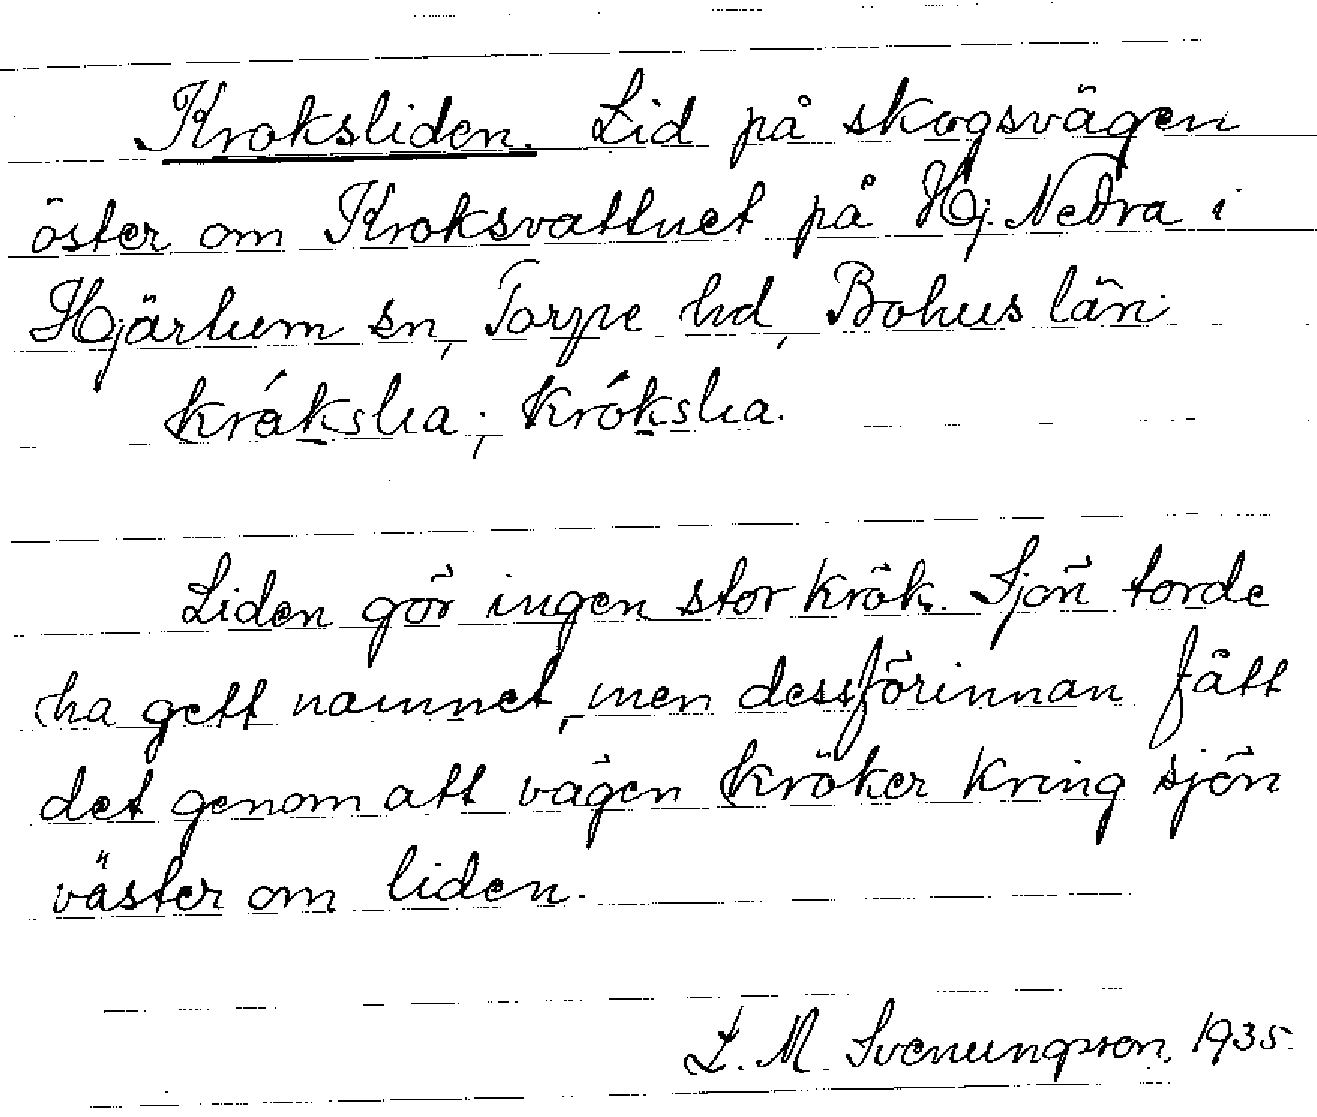 Kroksliden. Lid på skogsvägen
öster om Kroksvattnet på Hj. Nedra i
Hjärtum sn, Torpe hd, Bohus län.
kråkslia; krókslia.
Liden gör ingen stor krök. Sjön torde
ha gett namnet, men dessförinnan fått
det genom att vägen kröker kring sjön
väster om liden.
L. M. Svenungsson 1935.